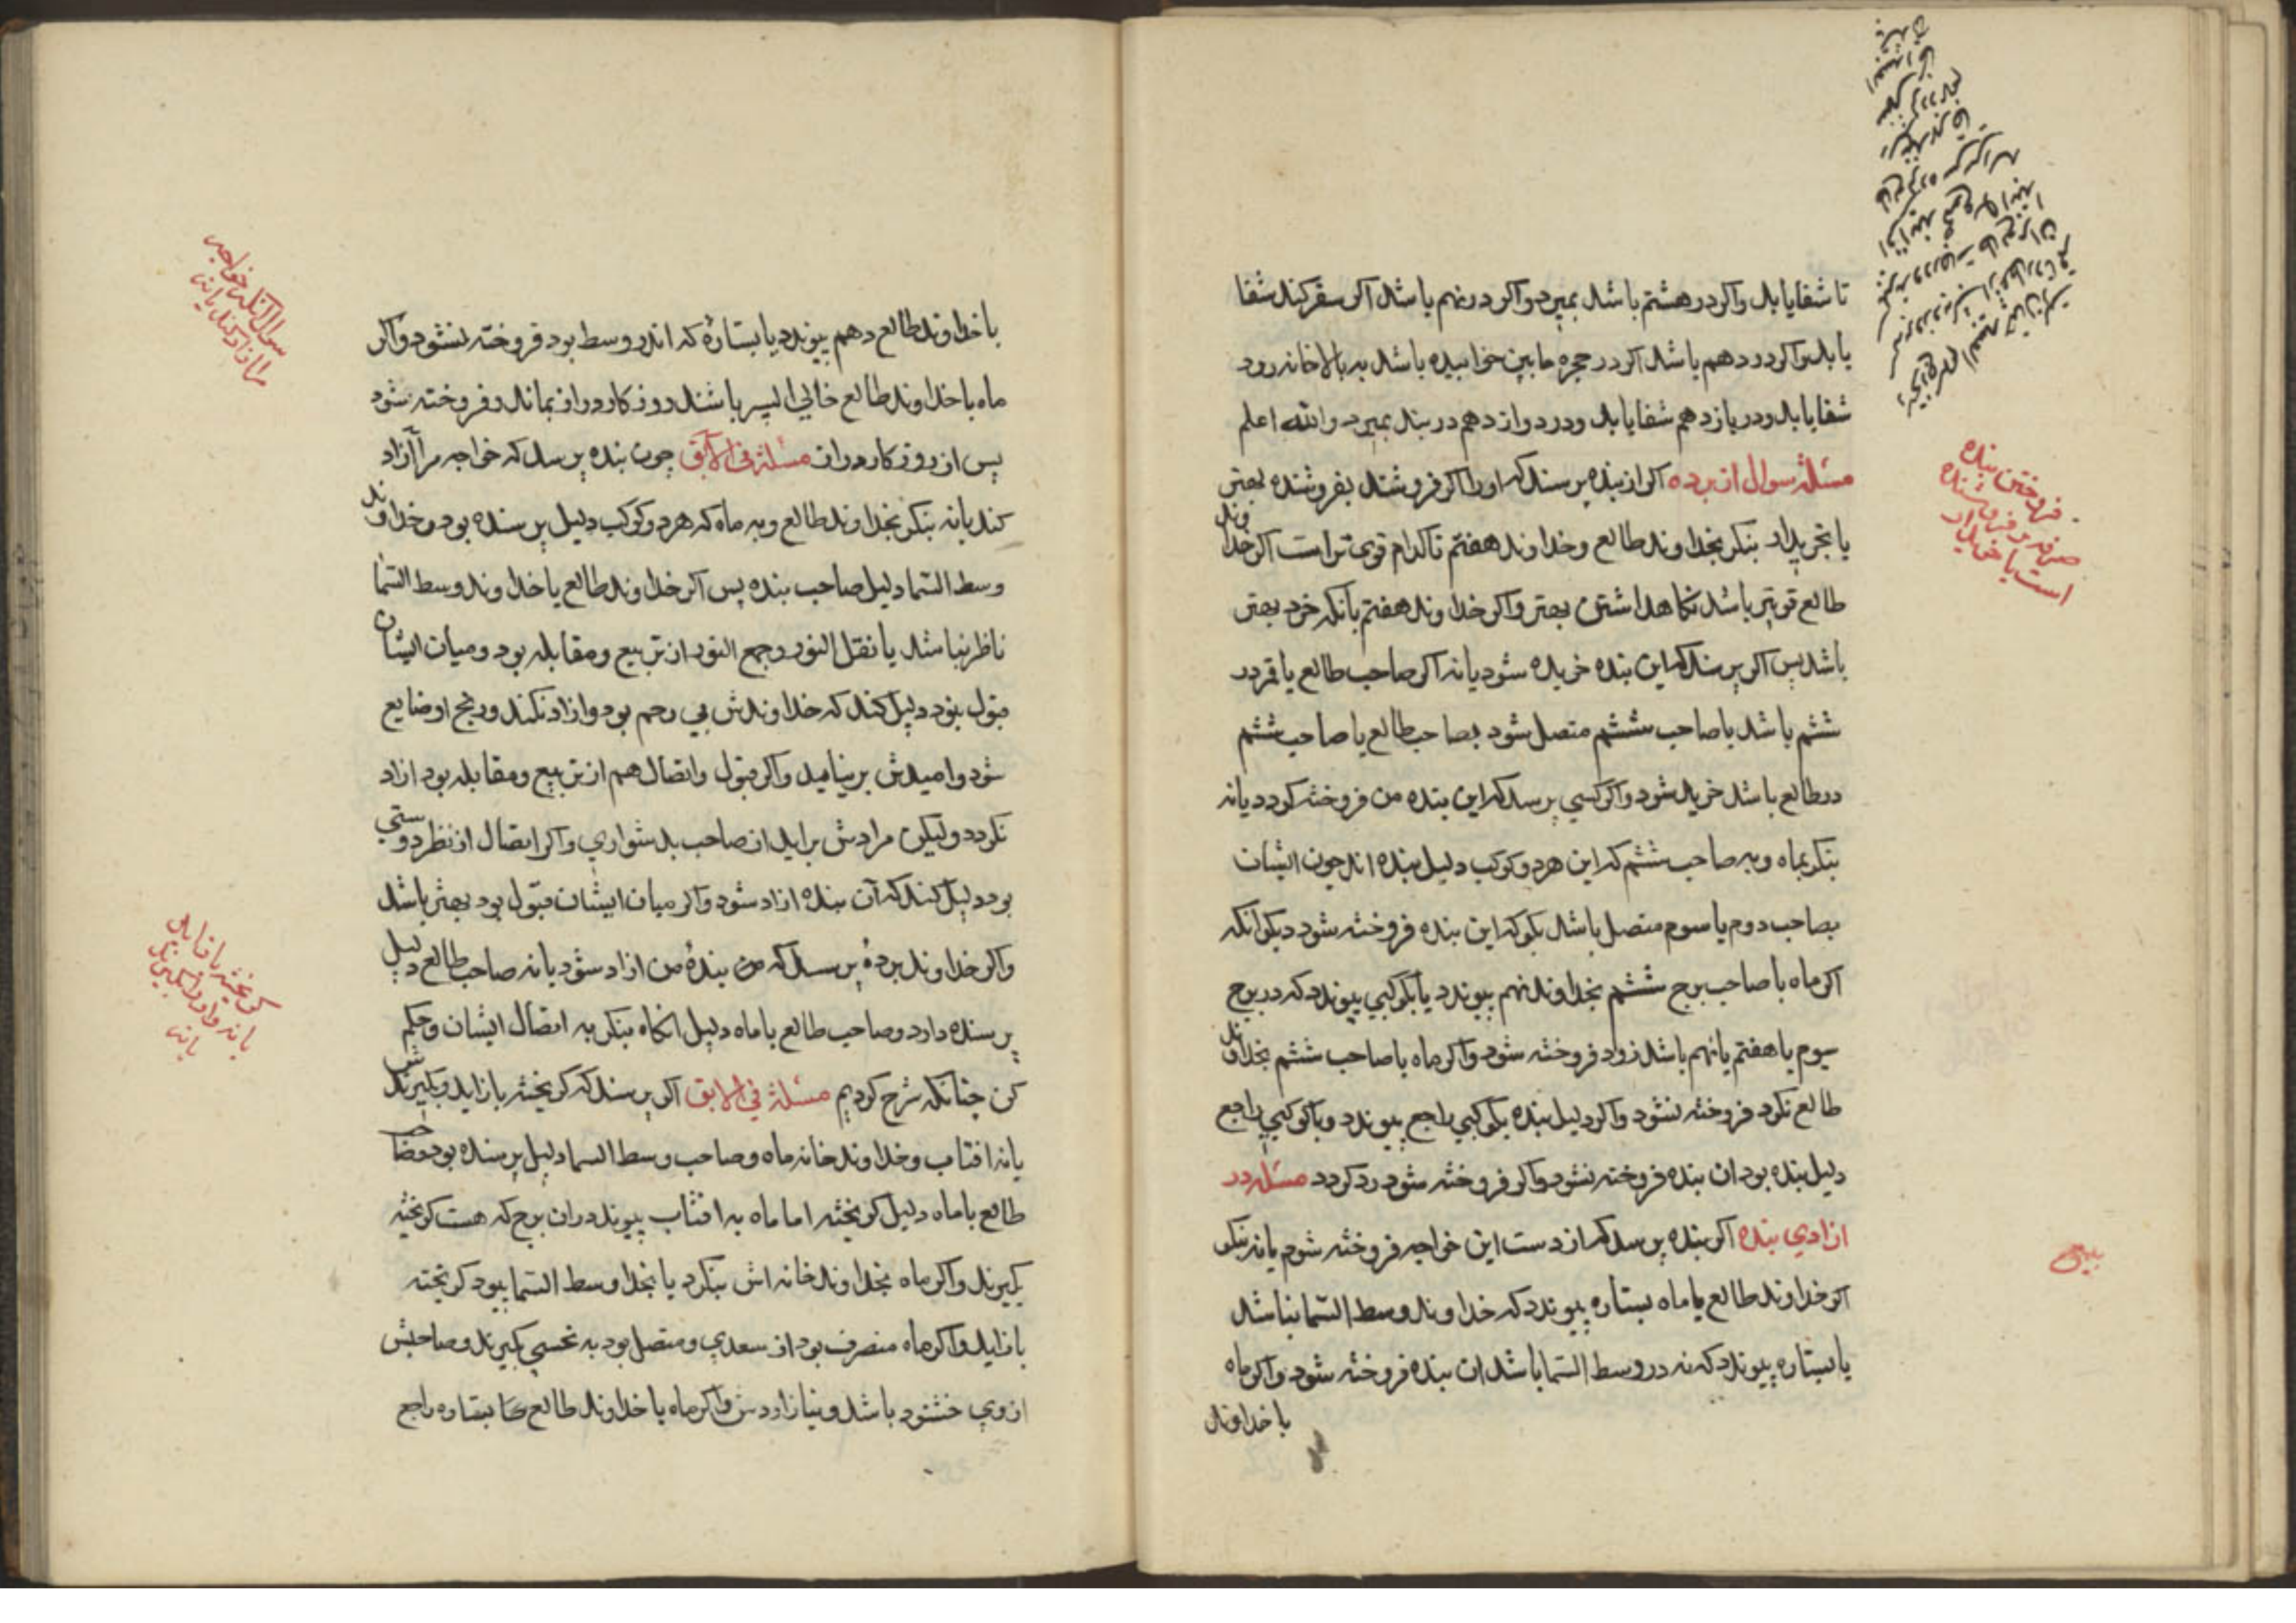 تا شفا یابد واکر در هشتم باشد بمیرد واکر در نهم باشد اکر سفر کند شفا
یابد واکر در دهم باشد اکر در حجره مابین خوابیده باشد به بالاخانه رود
شفا یابد ودر یازدهم شفا یابد ودر دوازدهم در بند بمیرد والله اعلم
مسئلة سوال از برده اکر از بنده پرسند که اورا اکر فروشند بفروشنده بهتر
یا بخریدار بنکر بخداوند طالع وخداوند هفتم تا کدام قوی تر است اکر خداوند
طالع قویتر باشد نکاهداشتن بهتر واکر خداوند هفتم بانکه خرد بهتر
باشد پس اکر پرسند که این بنده خریده شود یا نه اکر صاحب طالع یا قمر در
ششم باشد یا صاحب ششم متصل شود بصاحب طالع یا صاحب ششم
در طالع باشد خرید شود واکر کسی پرسد که این بنده من فروخته کردد یا نه
بنکر بماه وبه صاحب ششم که این هر دو کوکب دلیل بنده اند چون ایشان
بصاحب دوم یا سوم متصل باشد بکو که این بنده فروخته شود دیکر انکه
اکر ماه با صاحب برج ششم بخداوند نهم پیوندد یا بکوکبی پیوندد که در برج
سیوم یا هفتم یا نهم باشد زود فروخته شود واکر ماه یا صاحب ششم بخداوند
طالع نکرد فروخته نشود واکر دلیل بنده بکوکبی راجع پیوندد ویا کوکبی راجع
دلیل بنده بود ان بنده فروخته نشود واکر فروخته شود رد کردد مسئله در
ازادی بنده اکر بنده پرسد که از دست این خواجه فروخته شوم یا نه بنکر
اکر خداوند طالع یا ماه بستاره پیوندد که خداوند وسط السّما نباشد
یا بستاره پیوندد که نه در وسط السّما باشد ان بنده فروخته شود واکر ماه
با خداوند
فروختن بنده
صرفه وفروشنده
است یا خریدار
با خداوند طالع دهم پیوندد یا بستارهٔ که اندر وسط بود فروخته نشود واکر
ماه با خداوند طالع خالی السیر باشند روزکار دراز بماند وفروخته شود
پس از روزکار دراز مسئلة فی الآبق چون بنده پرسد که خواجه مرا آزاد
کند یا نه بنکر بخداوند طالع وبه ماه که هر دو کوکب دلیل پرسنده بود وخداوند
وسط السّما دلیل صاحب بنده پس اکر خداوند طالع با خداوند وسط السّما
ناظر نباشد یا نقل النور وجمع النور از تربیع ومقابله بود ومیان ایشان
قبول نبود دلیل کند که خداوندش بی رحم بود وازاد نکند ورنج او ضایع
شود وامیدش بر نیامید واکر قبول واتصال هم از تربیع ومقابله بود ازاد
نکردد ولیکن مرادش براید از صاحب بدشواری واکر اتصال از نظر دوستی
بود دلیل کند که آن بنده ازاد شود واکر میان ایشان قبول بود بهتر باشد
واکر خداوند بردهٔ پرسد که من بندهٔ من ازاد شود یا نه صاحب طالع دلیل
پرسنده دارد وصاحب طالع یا ماه دلیل انکاه بنکر به اتصال ایشان وحکم
کن چنانکه شرح کردیم مسئلة فی الابق اکر پرسند که کریخته باز اید وبکیرندش
یا نه افتاب وخداوند خانه ماه وصاحب وسط السما دلیل پرسنده بود وصاحب
طالع یا ماه دلیل کریخته اما ماه به افتاب پیوندد ران برج که هست کریخته
بکیرند واکر ماه بخداوند خانه اش بنکرد یا بخداوسط السّما پیود کریخته
باز اید واکر ماه منصرف بود از سعدی ومتصل بود به نحسی بکیرند وصاحبش
از وی خشنود باشد ونیازاردش واکر ماه یا خداوند طالع کا بستاره راجع
سوال انکه خواجه
مرا ازاد کند یا نه
کریخته باز اید
یا نه واورا بکیرند
یا نه